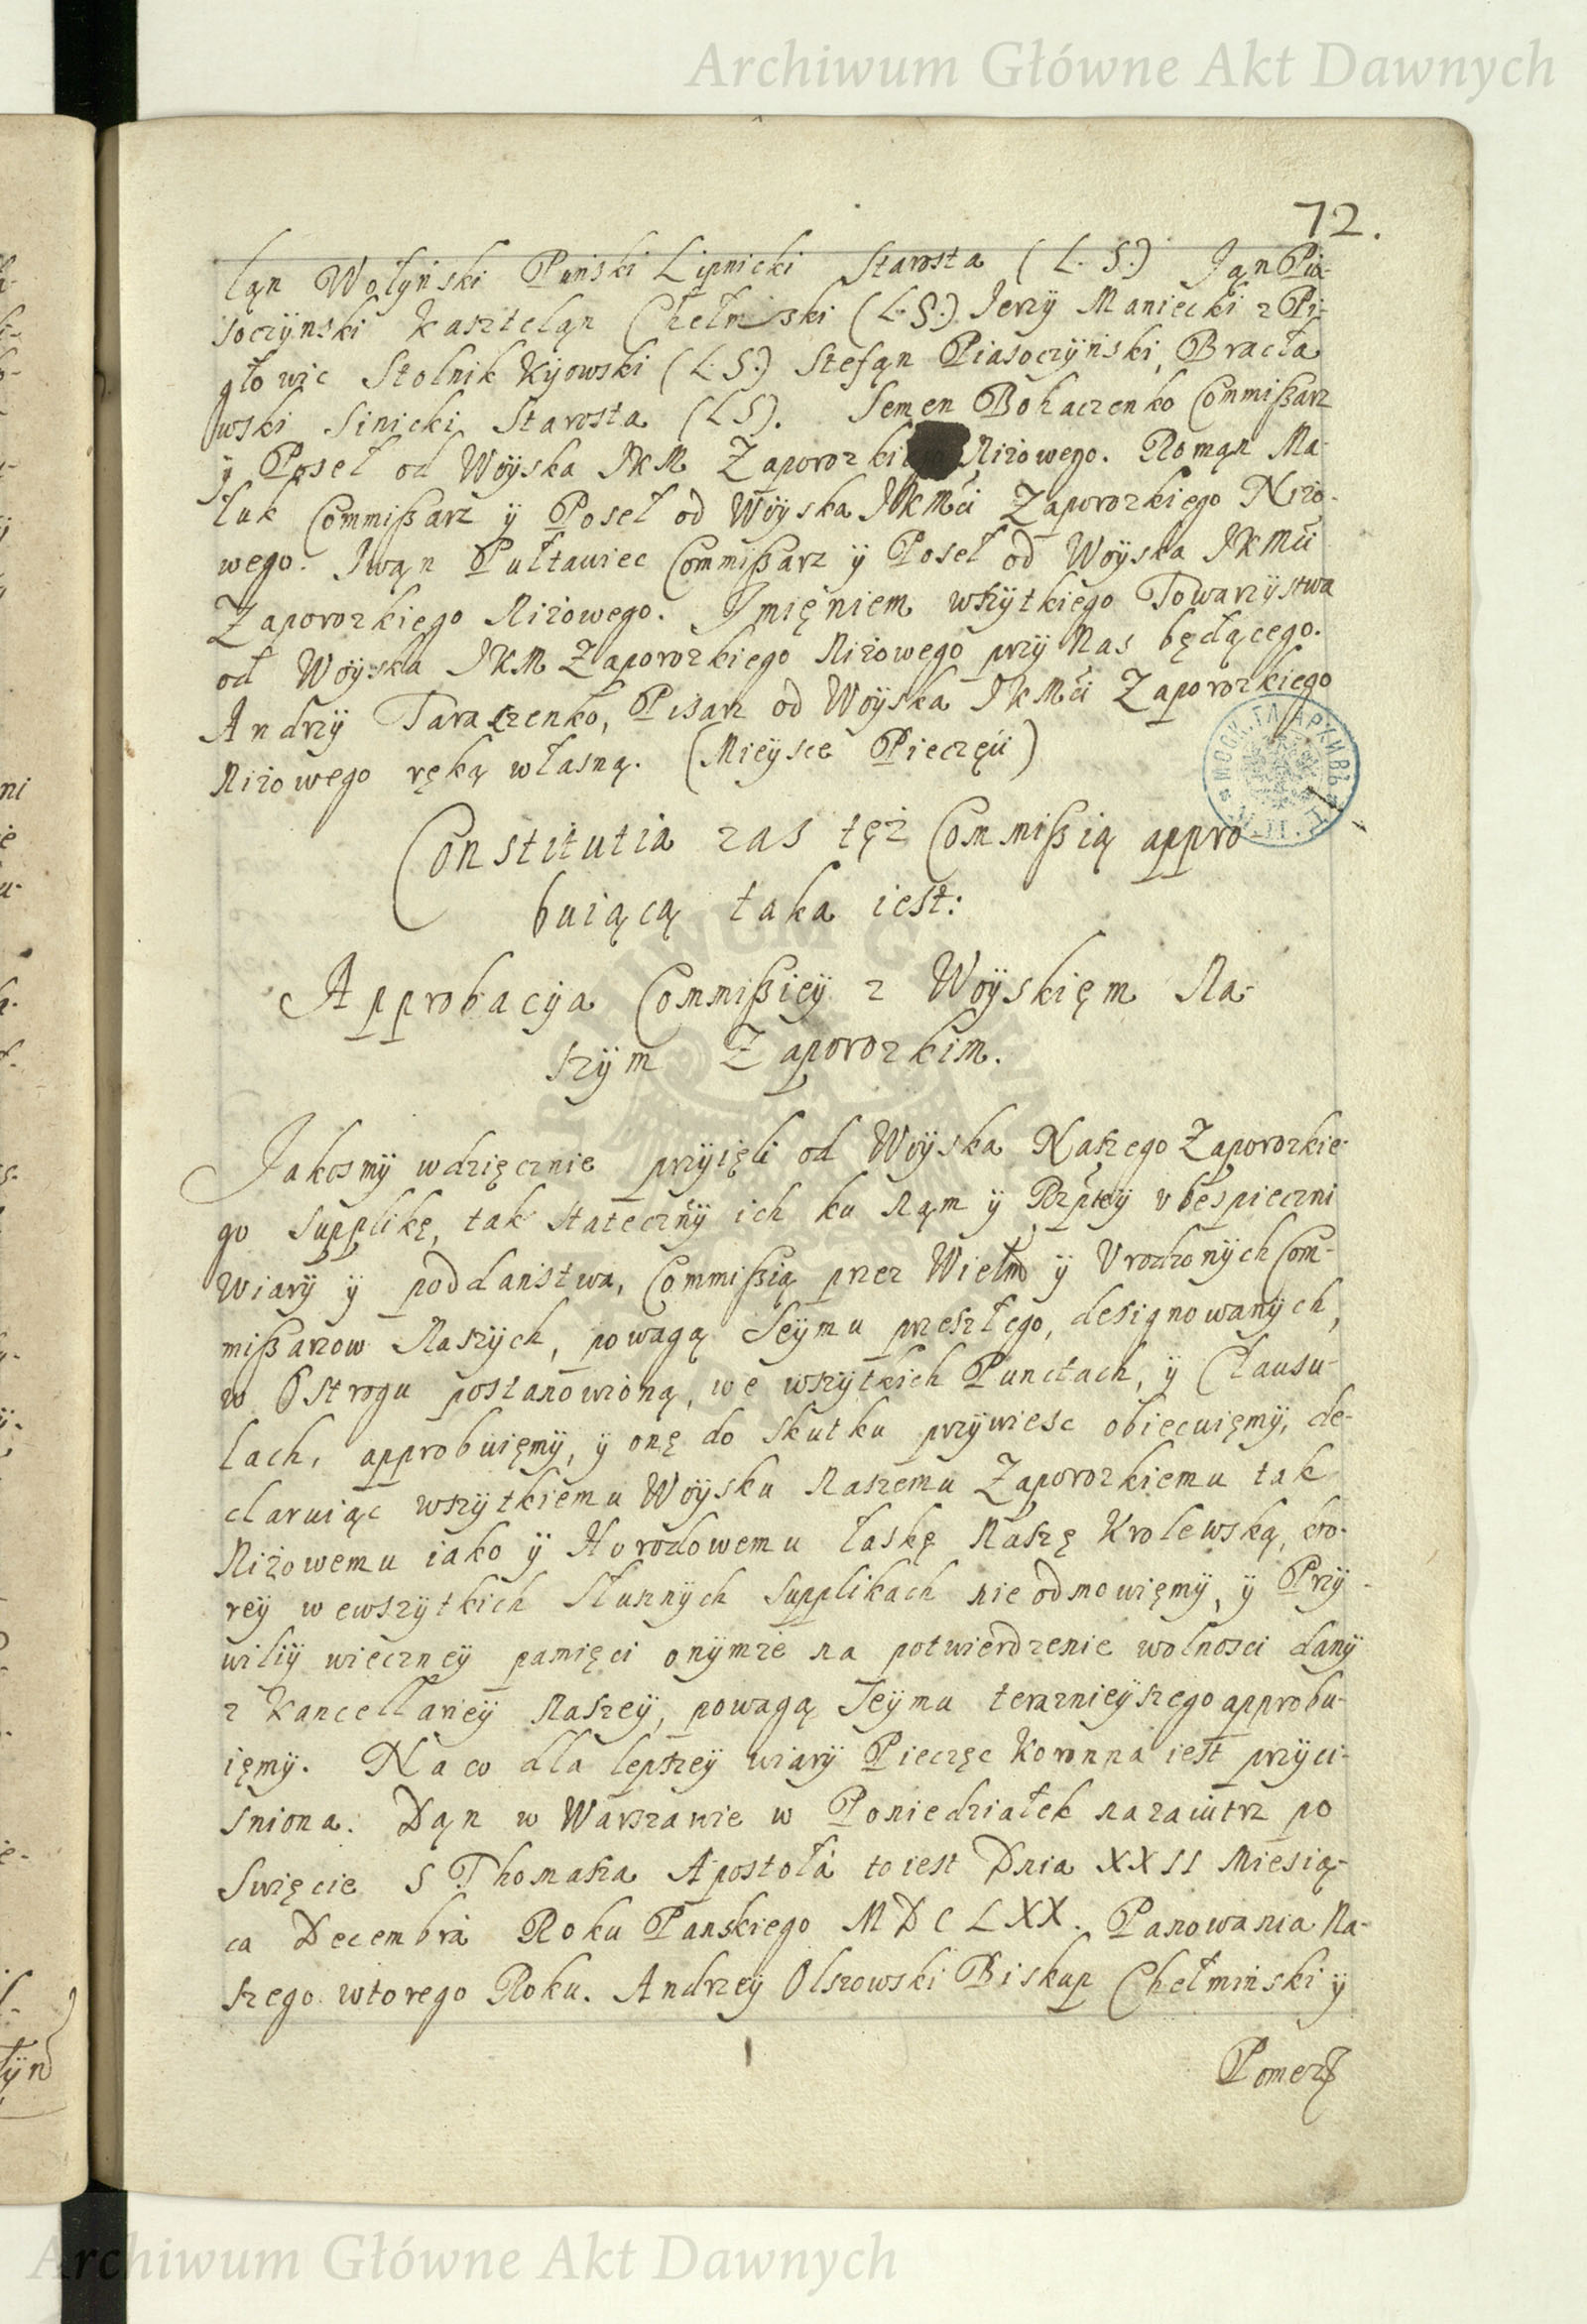 Archiwum Główne Akt Dawnych
72.
ląn Wołyński Piński Lipnicki Starosta (L. S.) Ján Pia-
soczynski Kaszteląn Chełmski (L.S.) Jerzy Maniecki z Pi-
głowic Stolnik Kijowski (L.S.) Stefąn Piasoczyński, Bracła
wski Sinicki Starosta (LS). Semen Bohaczenko Commißarz
ÿ Poseł od Woÿska JKM Zaporozki Niżowego. Romąn Ma-
luk Commißarz ÿ Poseł od Woÿska JKMći Zaporozkiego Niżo-
wego. Iwąn Pułtawiec Commißarz ÿ Poseł od Woÿska JKMći
Zaporozkiego Niżowego. Imięniem wszÿtkiego Towarzÿstwa
od Woÿska JKM Zaporozkiego Niżowego przÿ Nas będącego.
Andrzÿ Taraszenko, Pisarz od Woÿska JKMći Zaporozkiego
Niżowego ręką własną. (Mieÿsce Pieczęći)
МОСК. ГЛ. АРХИВЪ
Constitutia zas tęż Commißią appro
buiącą taka iest:
Approbacÿa Commißieÿ z Woÿskięm Na-
szÿm Zaporozkim.
Jakosmÿ wdzięcznie przÿięli od Woÿska Naszego Zaporozkie-
go supplikę, tak statecznÿ ich ku nąm ÿ Rzpteÿ ubespieczni
wiarÿ ÿ poddaństwa, Commißią przez Wielm ÿ Urodzonÿch Com-
mißarzow Naszÿch, powagą Seÿmu przeszłego, designowanÿch,
w Ostrogu postanowioną, we wszÿtkich Punctach, ÿ Clausu-
lach, approbuięmÿ, ÿ onę do skutku przÿwiesc obiecuięmÿ, de-
claruiąc wszÿtkiemu Woÿsku Naszemu Zaporozkiemu tak
Niżowemu iako ÿ Horodowemu łaskę Naszę Krolewską, kto-
reÿ wewszÿtkich słusznÿch supplikach nie odmowięmÿ, ÿ Przÿ-
wiliÿ wieczneÿ pamięci onÿmże na potwierdzenie wolnosci danÿ
z Kancellarieÿ Naszeÿ, powagą Seÿmu terazniejszego approbu-
ięmÿ. Na co dla lepszeÿ wiarÿ Pieczęc Koronna iest przÿci-
sniona. Dąn w Warszawie w Poniedziałek nazaiutrz po
Swięcie S Thomasza Apostoła toiest Dnia XXII Miesią-
ca Decembra Roku Panskiego MDCLXX. Panowania Na-
szego wtorego Roku. Andrzeÿ Olszowski Biskup Chełmiński ÿ
Pomerz
Archiwum Główne Akt Dawnych